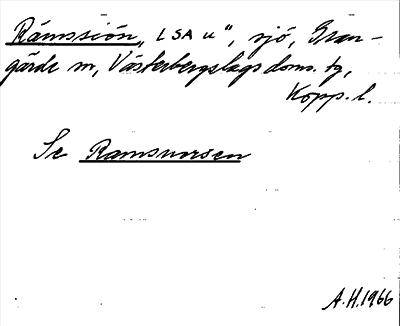 Rämssión, "LSA u", sjö, Gran-
gärde sn, Västerbergslags doms. tg,
Kopp. l.
Se Ramsnorsen
A.H. 1966